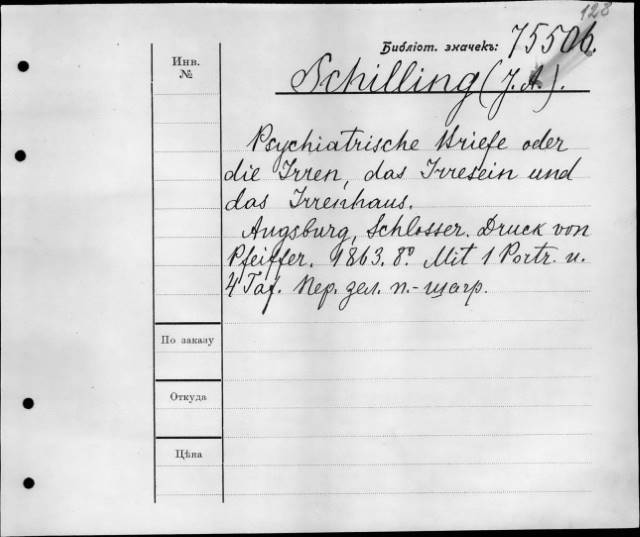 128
Библіот. значекъ: 75506.
Инв.
№
Schilling (J. A.).
Psychiatrische Briefe oder
die Irren, das Irresein und
das Irrenhaus.
Augsburg, Schlosser. Druck von
Pfeiffer. 1863. 8º Mit 1 Portr. u.
4 Taf. Пер. зел. п.-шагр.
По заказу
Откуда
Цѣна